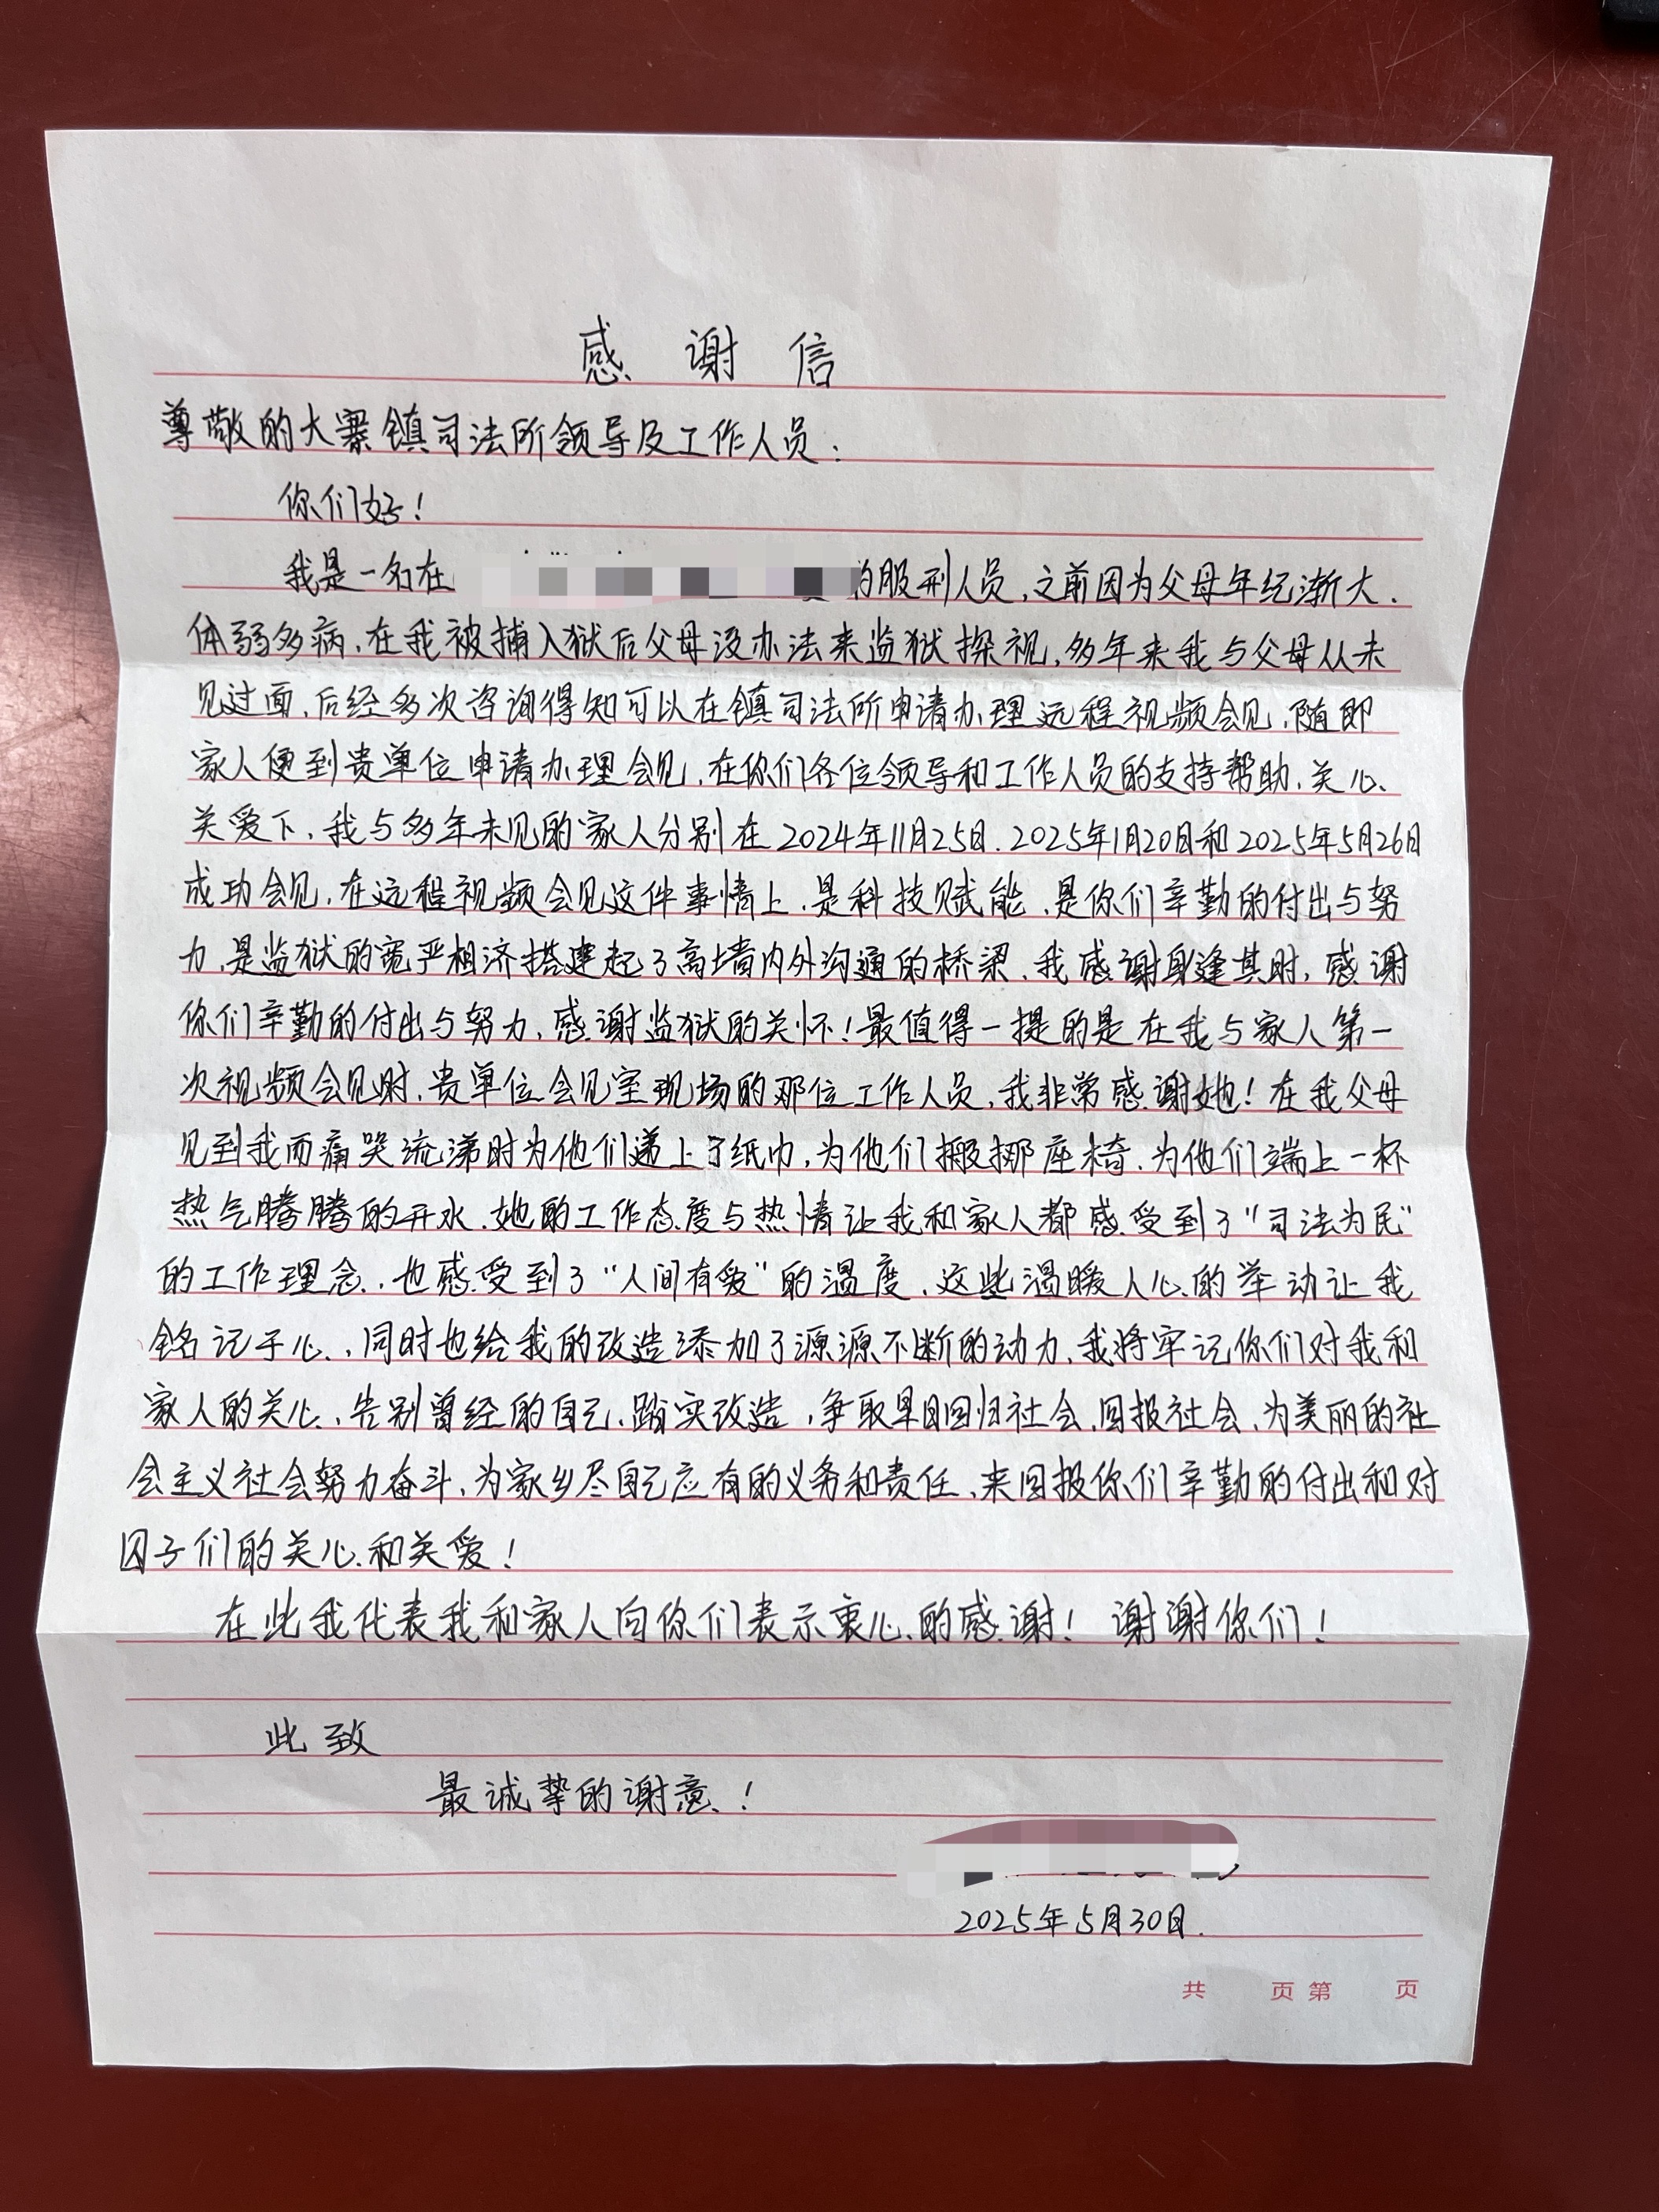 感谢信
尊敬的大寨镇司法所领导及工作人员：
你们好！
我是一名在的服刑人员，之前因为父母年纪渐大、
体弱多病，在我被捕入狱后父母没办法来监狱探视，多年来我与父母从未
见过面，后经多次咨询得知可以在镇司法所申请办理远程视频会见，随即
家人便到贵单位申请办理会见，在你们各位领导和工作人员的支持帮助、关心、
关爱下，我与多年未见的家人分别在2024年11月25日、2025年1月20日和2025年5月26日
成功会见，在远程视频会见这件事情上，是科技赋能，是你们辛勤的付出与努
力，是监狱的宽严相济搭建起了高墙内外沟通的桥梁，我感谢身逢其时，感谢
你们辛勤的付出与努力，感谢监狱的关怀！最值得一提的是在我与家人第一
次视频会见时，贵单位会见室现场的那位工作人员，我非常感谢她！在我父母
见到我而痛哭流涕时为他们递上了纸巾，为他们搬挪座椅，为他们端上一杯
热气腾腾的开水，她的工作态度与热情让我和家人都感受到了“司法为民”
的工作理念，也感受到了“人间有爱”的温度，这些温暖人心的举动让我
铭记于心，同时也给我的改造添加了源源不断的动力，我将牢记你们对我和
家人的关心，告别曾经的自己，踏实改造，争取早日回归社会，回报社会，为美丽的社
会主义社会努力奋斗，为家乡尽自己应有的义务和责任，来回报你们辛勤的付出和对
囚子们的关心和关爱！
在此我代表我和家人向你们表示衷心的感谢！谢谢你们！
此致
最诚挚的谢意！
2025年5月30日.
共 页 第 页